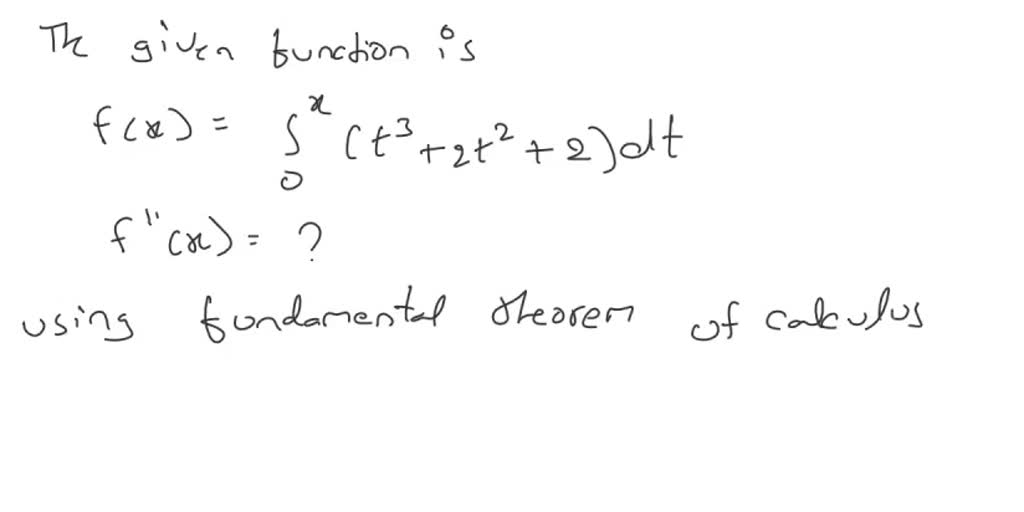 The given function is
f(x) = ∫₀ˣ (t³ + 2t² + 2)dt
f''(x) = ?
using fundamental theorem of calculus